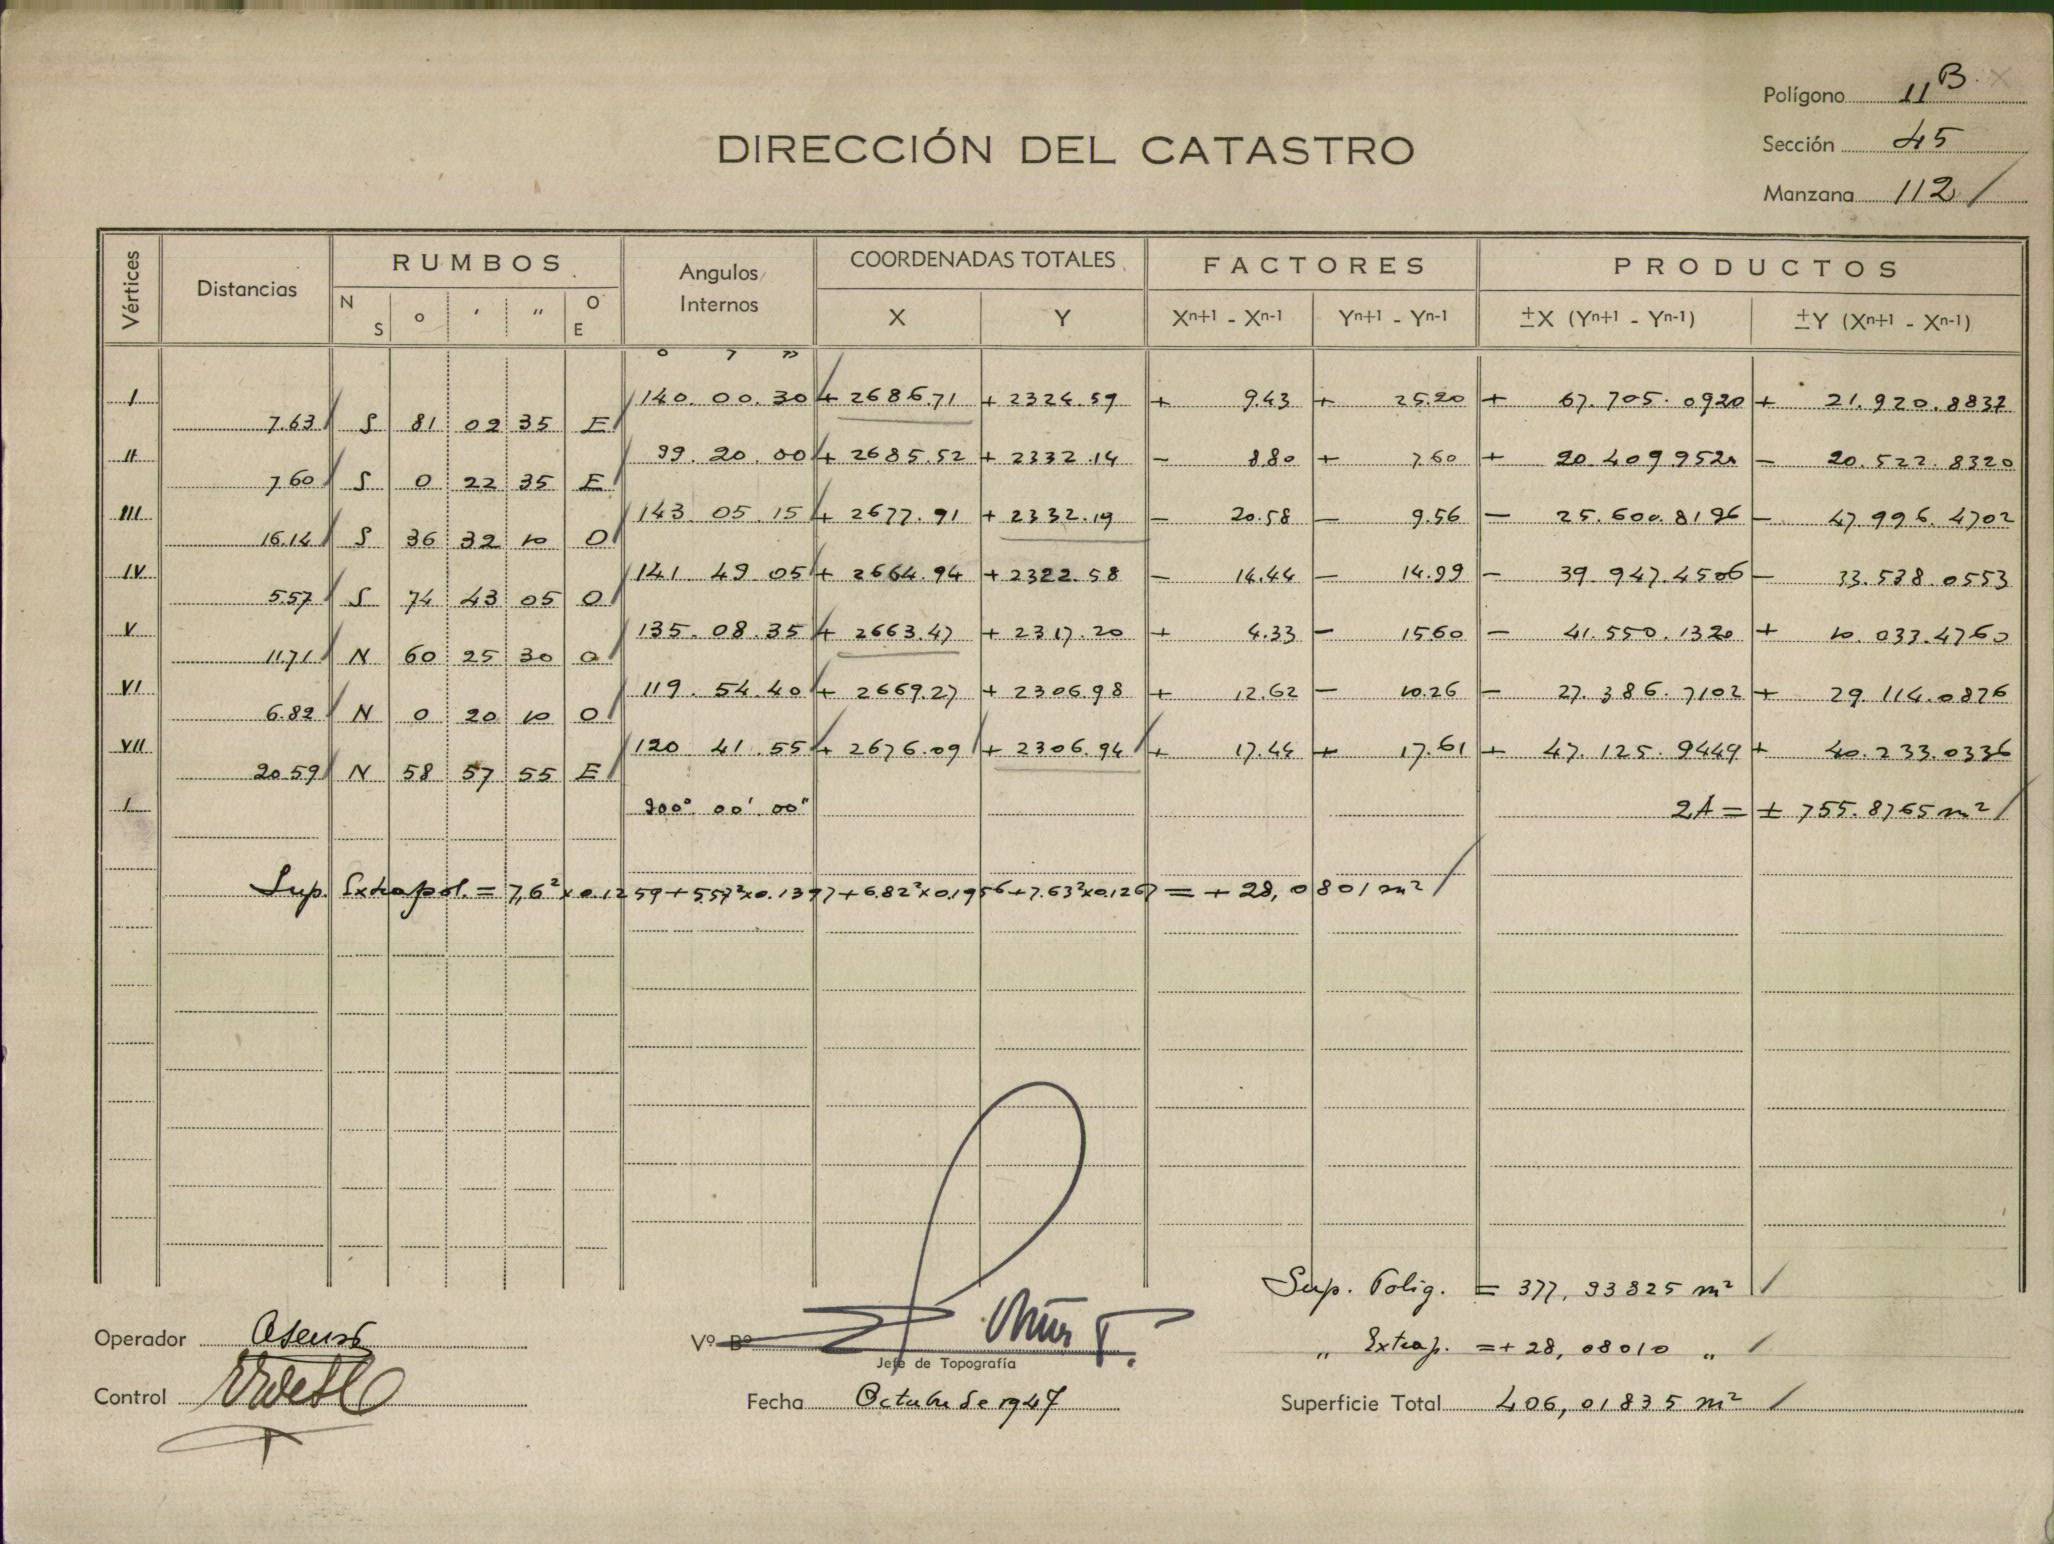 Polígono 11B
Sección 45
DIRECCIÓN DEL CATASTRO
Manzana 112
Vértices Distancias RUMBOS Angulos Internos COORDENADAS TOTALES FACTORES PRODUCTOS
N S ° ' " O E X Y Xn+1 - Xn-1 Yn+1 - Yn-1 ±X (Yn+1 - Yn-1) ±Y (Xn+1 - Xn-1)
° ' "
I 140. 00. 30 + 2686.71 + 2324.59 + 9.43 + 25.20 + 67.705.0920 + 21.920.8837
7.63 S 81 02 35 E
II 99. 20. 00 + 2685.52 + 2332.14 - 8.80 + 7.60 + 20.409.9520 - 20.522.8320
7.60 S 0 22 35 E
III 143. 05. 15 + 2677.91 + 2332.19 - 20.58 - 9.56 - 25.600.8196 - 47.996.4702
16.14 S 36 32 10 O
IV 141 49 05 + 2664.94 + 2322.58 - 14.44 - 14.99 - 39.947.4506 - 33.538.0553
5.57 S 74 43 05 O
V 135. 08. 35 + 2663.47 + 2317.20 + 4.33 - 15.60 - 41.550.1320 + 10.033.4760
11.71 N 60 25 30 O
VI 119. 54. 40 + 2669.27 + 2306.98 + 12.62 - 10.26 - 27.386.7102 + 29.114.0876
6.82 N 0 20 10 O
VII 120 41. 55 + 2676.09 + 2306.94 + 17.44 + 17.61 + 47.125.9449 + 40.233.0336
20.59 N 58 57 55 E
I 900° 00' 00" 2A = ± 755.8765 m²
Sup. Extrapol. = 7,6² x 0.1259 + 5.57² x 0.1397 + 6.82² x 0.1956 + 7.63² x 0.1267 = + 28,0801 m²
Sup. Polig. = 377,93825 m²
Operador
Vº Bº
" Extrap. = + 28,08010 "
Jefe de Topografía
Control
Fecha Octubre de 1947
Superficie Total 406,01835 m²